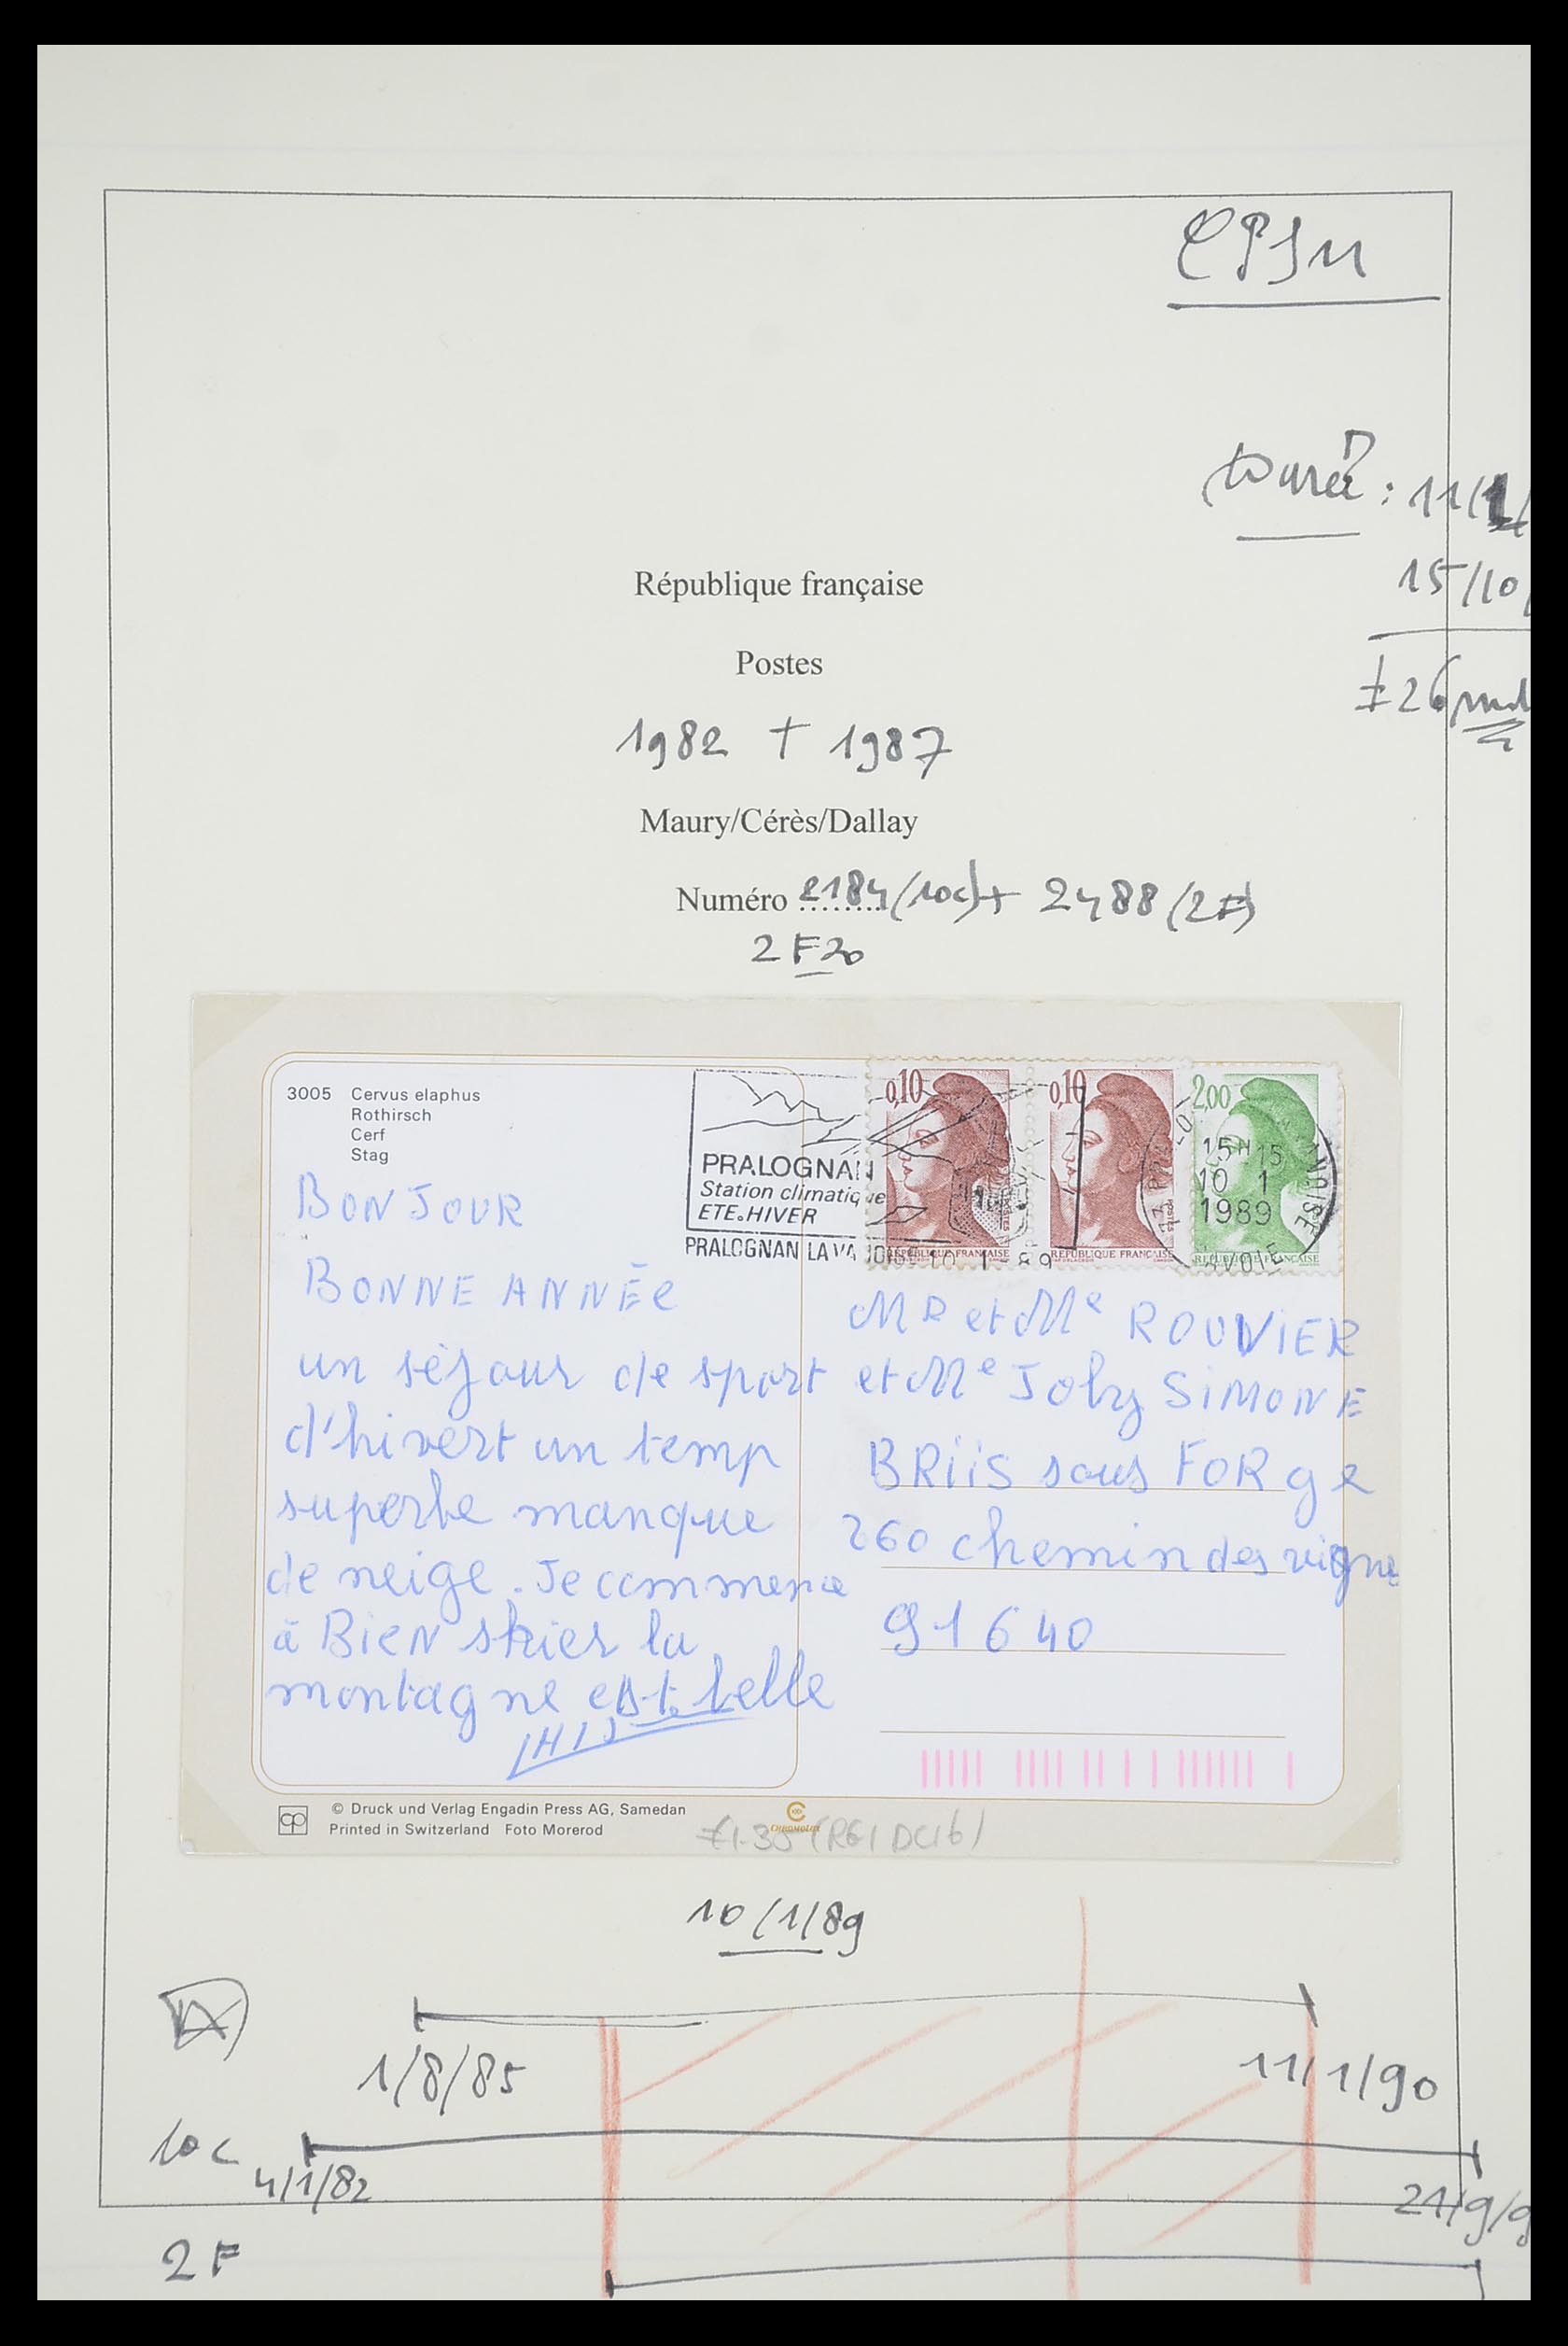 CPSM
Durée : 11/1/
15/10/
± 26
République française
Postes
1982 + 1987
Maury/Cérès/Dallay
Numéro 2184 (10c) + 2488 (2F)
2F20
3005 Cervus elaphus
Rothirsch
Cerf
Stag
PRALOGNAN
Station climatique
ETE.HIVER
PRALOGNAN LA VANOISE 10 1 89
0,10
RÉPUBLIQUE FRANÇAISE
0,10
RÉPUBLIQUE FRANÇAISE
2,00
RÉPUBLIQUE FRANÇAISE
15H15
10 1
1989
SAVOIE
BONJOUR
BONNE ANNÉe
un séjour de sport
d'hivert un temp
superbe manque
de neige. Je commence
à BieN skier la
montagne est belle
MR et Me ROUVIER
et Me Joly SiMONE
BRiiS sous FORge
260 chemin des vigne
91640
© Druck und Verlag Engadin Press AG, Samedan
Printed in Switzerland Foto Morerod
CHROMOLUX
£1-30 (R61DC16)
10/1/89
1/8/85
11/1/90
10c
4/1/82
21/9/9
2F